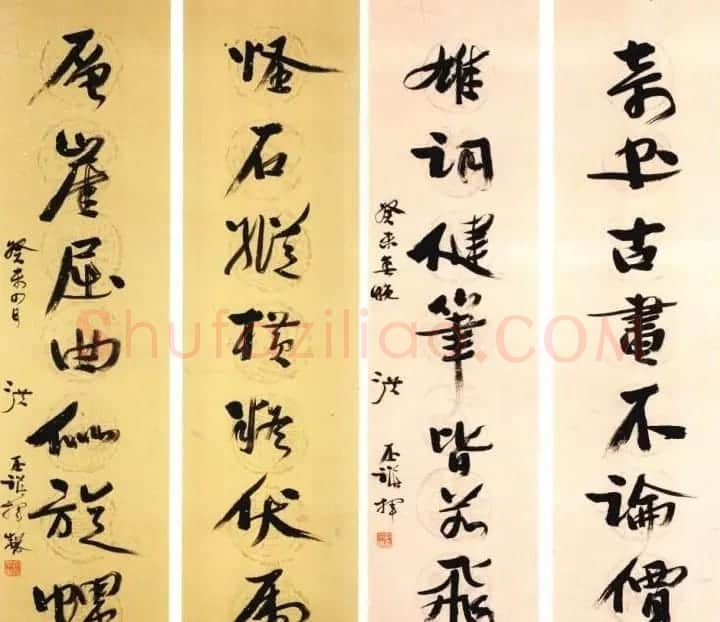 奇书古畫不論價
雄詞健筆皆若飛
癸未春晚 洪丕謨揮
怪石縱横疑伏虎
層崖屈曲似旋螺
癸未四月 洪丕謨揮製
Shufaziliao.COM